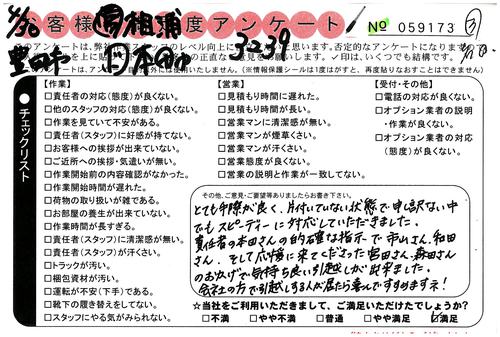 お客様満足度アンケート
№ 059173
4/30
相浦
3239
※このアンケートは、弊社
チェックリスト
【作業】
□責任者の対応(態度)が良くない。
□他のスタッフの対応(態度)が良くない。
□作業を見ていて不安がある。
□責任者(スタッフ)に好感が持てない。
□お客様への挨拶が出来ていない。
□ご近所への挨拶・気遣いが無い。
□作業開始前の内容確認がなかった。
□作業開始時間が遅れた。
□荷物の取り扱いが雑である。
□お部屋の養生が出来ていない。
□作業時間が長すぎる。
□責任者(スタッフ)に清潔感が無い。
□責任者(スタッフ)が汗くさい。
□トラックが汚い。
□梱包資材が汚い。
□運転が不安(下手)である。
□靴下の履き替えをしてない。
□スタッフにやる気がみられない。
【営業】
□見積もり時間に遅れた。
□見積もり時間が長い。
□営業マンに清潔感が無い。
□営業マンが煙草くさい。
□営業マンが汗くさい。
□営業態度が良くない。
□営業の説明と作業が一致してない。
【受付・その他】
□電話の対応が良くない。
□オプション業者の説明
・作業が良くない。
□オプション業者の対応
(態度)が良くない。
その他、ご意見・ご要望等ありましたらお書き下さい。
とても手際が良く、片付いていない状態で申し訳ない中
でもスピーディーに対応していただきました。
責任者の本田さんの的確な指示で市山さん、和田
さん、そして応援に来てくださった宮田さん、森田さん
のおかげで気持ち良い引越しが出来ました。
会社の方で引越しする人が居たら喜んですすめます!
☆当社をご利用いただきまして、ご満足いただけたでしょうか?
□不満 □やや不満 □普通 □やや満足 ☑満足